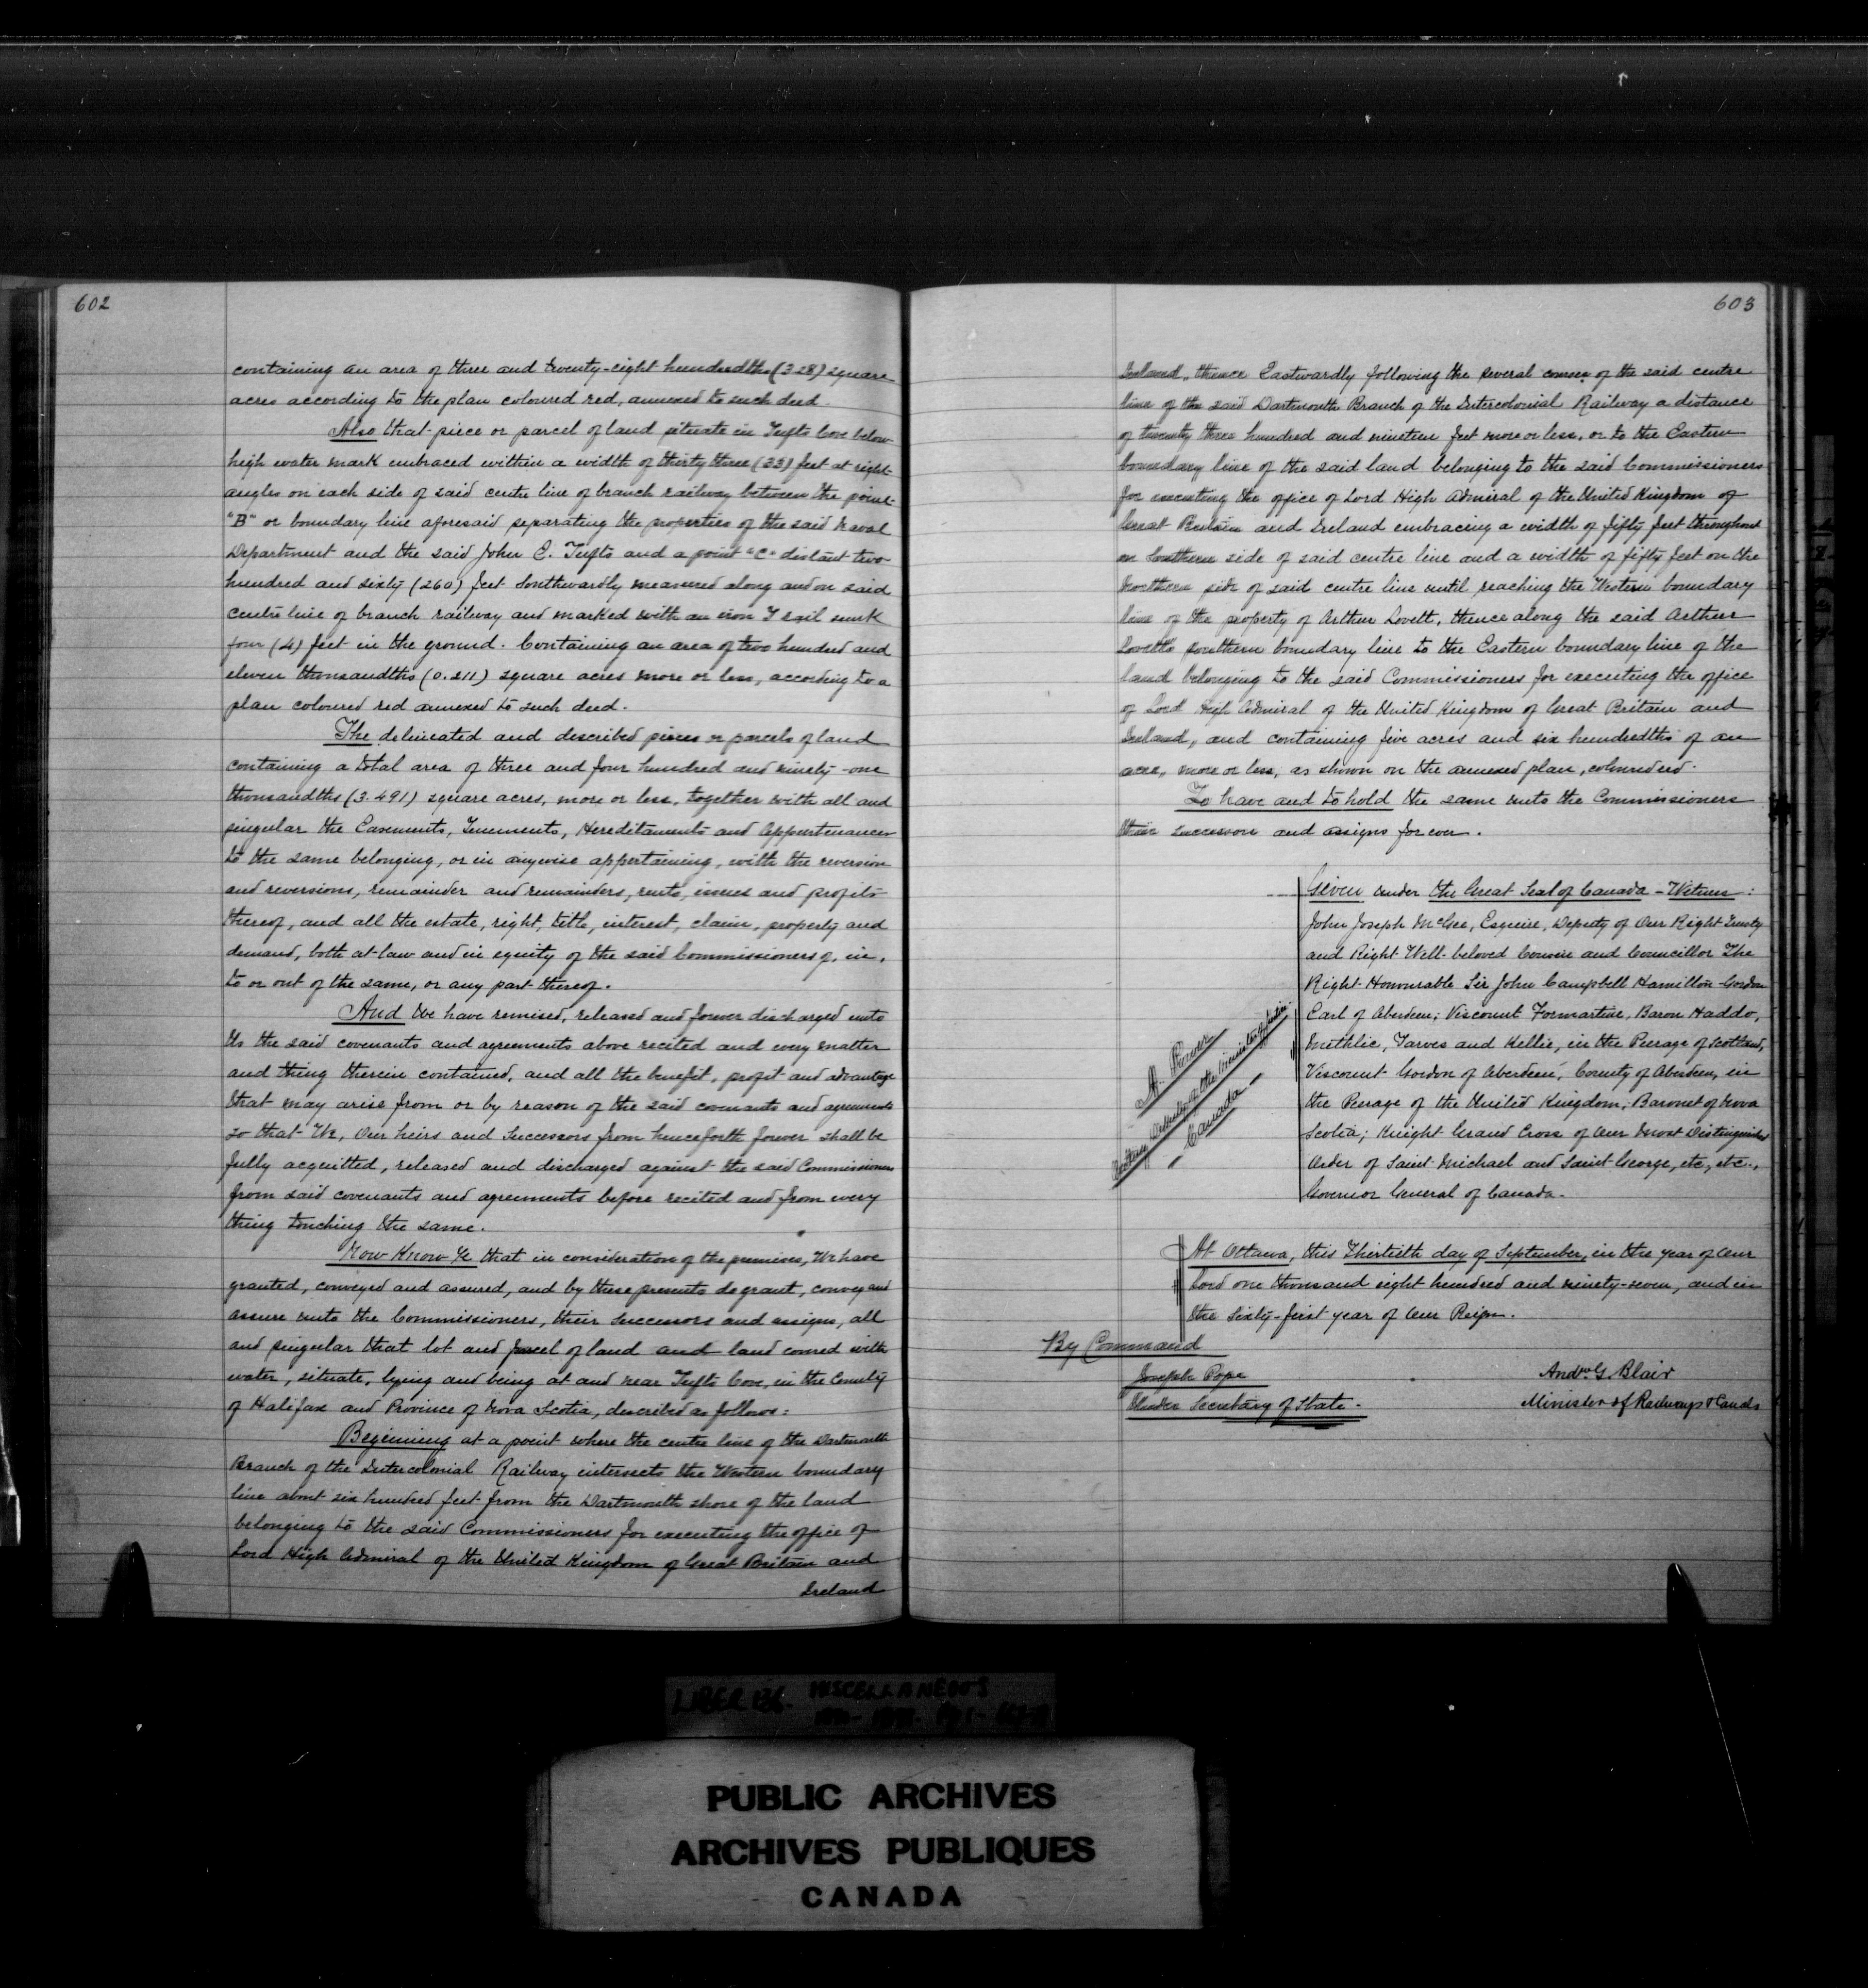 602
containing an area of three and twenty-eight hundredths (3.28) square
acres according to the plan coloured red, annexed to such deed.
Also that piece or parcel of land situate in Tufts Cove below
high water mark embraced within a width of thirty three (33) feet at right
angles on each side of said centre line of branch railway between the point
"B" or boundary line aforesaid separating the properties of the said Naval
Department and the said John E. Tufts and a point "C" distant two
hundred and sixty (260) feet Southwardly measured along and on said
centre line of branch railway and marked with an iron T rail sunk
four (4) feet in the ground. Containing an area of two hundred and
eleven thousandths (0.211) square acres more or less, according to a
plan coloured red annexed to such deed.
The delineated and described pieces or parcels of land
containing a total area of three and four hundred and ninety-one
thousandths (3.491) square acres, more or less, together with all and
singular the Easements, Tenements, Hereditaments and Appurtenances
to the same belonging, or in anywise appertaining, with the reversion
and reversions, remainder and remainders, rents, issues and profits
thereof, and all the estate, right, title, interest, claim, property and
demand, both at law and in equity of the said Commissioners of, in,
to or out of the same, or any part thereof.
And We have remised, released and forever discharged unto
Us the said covenants and agreements above recited and every matter
and thing therein contained, and all the benefit, profit and advantage
that may arise from or by reason of the said covenants and agreements
so that We, Our heirs and Successors from henceforth forever shall be
fully acquitted, released and discharged against the said Commissioners
from said covenants and agreements before recited and from every
thing touching the same.
Now Know Ye that in consideration of the premises, We have
granted, conveyed and assured, and by these presents do grant, convey and
assure unto the Commissioners, their Successors and assigns, all
and singular that lot and parcel of land and land covered with
water, situate, lying and being at and near Tufts Cove, in the County
of Halifax and Province of Nova Scotia, described as follows:
Beginning at a point where the centre line of the Dartmouth
Branch of the Intercolonial Railway intersects the Western boundary
line about six hundred feet from the Dartmouth shore of the land
belonging to the said Commissioners for executing the office of
Lord High Admiral of the United Kingdom of Great Britain and
Ireland
603
Ireland, thence Eastwardly following the several courses of the said centre
line of the said Dartmouth Branch of the Intercolonial Railway a distance
of twenty three hundred and nineteen feet more or less, or to the Eastern
boundary line of the said land belonging to the said Commissioners
for executing the office of Lord High Admiral of the United Kingdom of
Great Britain and Ireland embracing a width of fifty feet throughout
on Southern side of said centre line and a width of fifty feet on the
Northern side of said centre line until reaching the Western boundary
line of the property of Arthur Lovett, thence along the said Arthur
Lovetts southern boundary line to the Eastern boundary line of the
land belonging to the said Commissioners for executing the office
of Lord High Admiral of the United Kingdom of Great Britain and
Ireland, and containing five acres and six hundredths of an
acre, more or less, as shown on the annexed plan, coloured red.
To have and to hold the same unto the Commissioners
their successors and assigns for ever.
Given under the Great Seal of Canada - Witness:
John Joseph McGee, Esquire, Deputy of Our Right Trusty
and Right Well-beloved Cousin and Councillor The
Right Honourable Sir John Campbell Hamilton-Gordon
Earl of Aberdeen; Viscount Formartine, Baron Haddo,
Methlic, Tarves and Kellie, in the Peerage of Scotland,
Viscount Gordon of Aberdeen, County of Aberdeen, in
the Peerage of the United Kingdom; Baronet of Nova
Scotia; Knight Grand Cross of Our Most Distinguished
Order of Saint Michael and Saint George, etc, etc.,
Governor General of Canada.
A. Power
Acting Deputy of the Minister of Justice
Canada
At Ottawa, this Thirtieth day of September, in the year of Our
Lord one thousand eight hundred and ninety-seven, and in
the Sixty-first year of Our Reign.
By Command
Joseph Pope
Under Secretary of State.
Andw G Blair
Minister of Railways & Canals
LIBER MISCELLANEOUS
PUBLIC ARCHIVES
ARCHIVES PUBLIQUES
CANADA